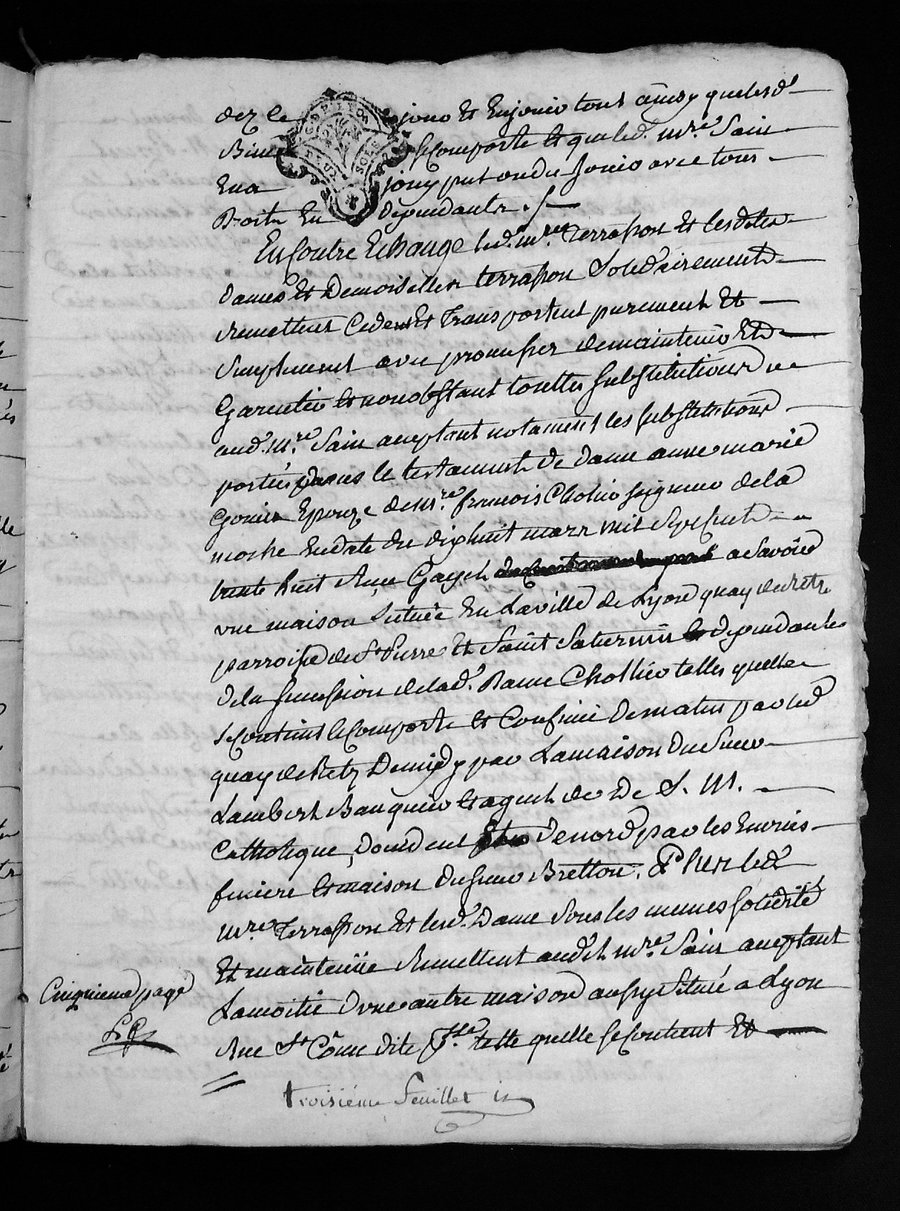 dez le jouo et Enjouio tout ainsy que lesd.
Bien se Comporte et que led. mre. Sain
En a jouy put ou du jouir avec tous
Droits En dependants ./.
En Contre Echange led. mre. Terrasson et lesdites
dames et Demoiselles terrasson Solidairement
Remettent Cedent et Transportent purement et
Simplement avec promesses de maintenir et de
Garentir et nonobstant touttes substitutions
aud. mre. Sain acceptant notament les substitutions
portées dans le testament de dame anne marie
Gonin Epouze de mre. francois Cholier seigneur de la
datte du dixhuit mars mil sept cent
trente huit a Savoir
une maison Située En La ville de Lyon quay de Retz
parroisse de St. Pierre et Saint Saturnin dependante
de la succession de lad. Dame Chollier telle quelle
se Contient se Comporte et Confine de matin par led.
quay de Retz De midy par La maison du Sieur
Lambert Banquier et agent de S. M.
Catholique, doccident de nord par les
et maison du sieur Bretton. Plus led.
mre. Terrasson et lesd. Dame Sous les memes solidité
Et maintenüe Remettent aud. mre. Sain acceptant
La moitié d'une autre maison aussy Située a Lyon
Rue St. Côme dite telle quelle se Contient et
Cinquieme page
troisiéme feuillet